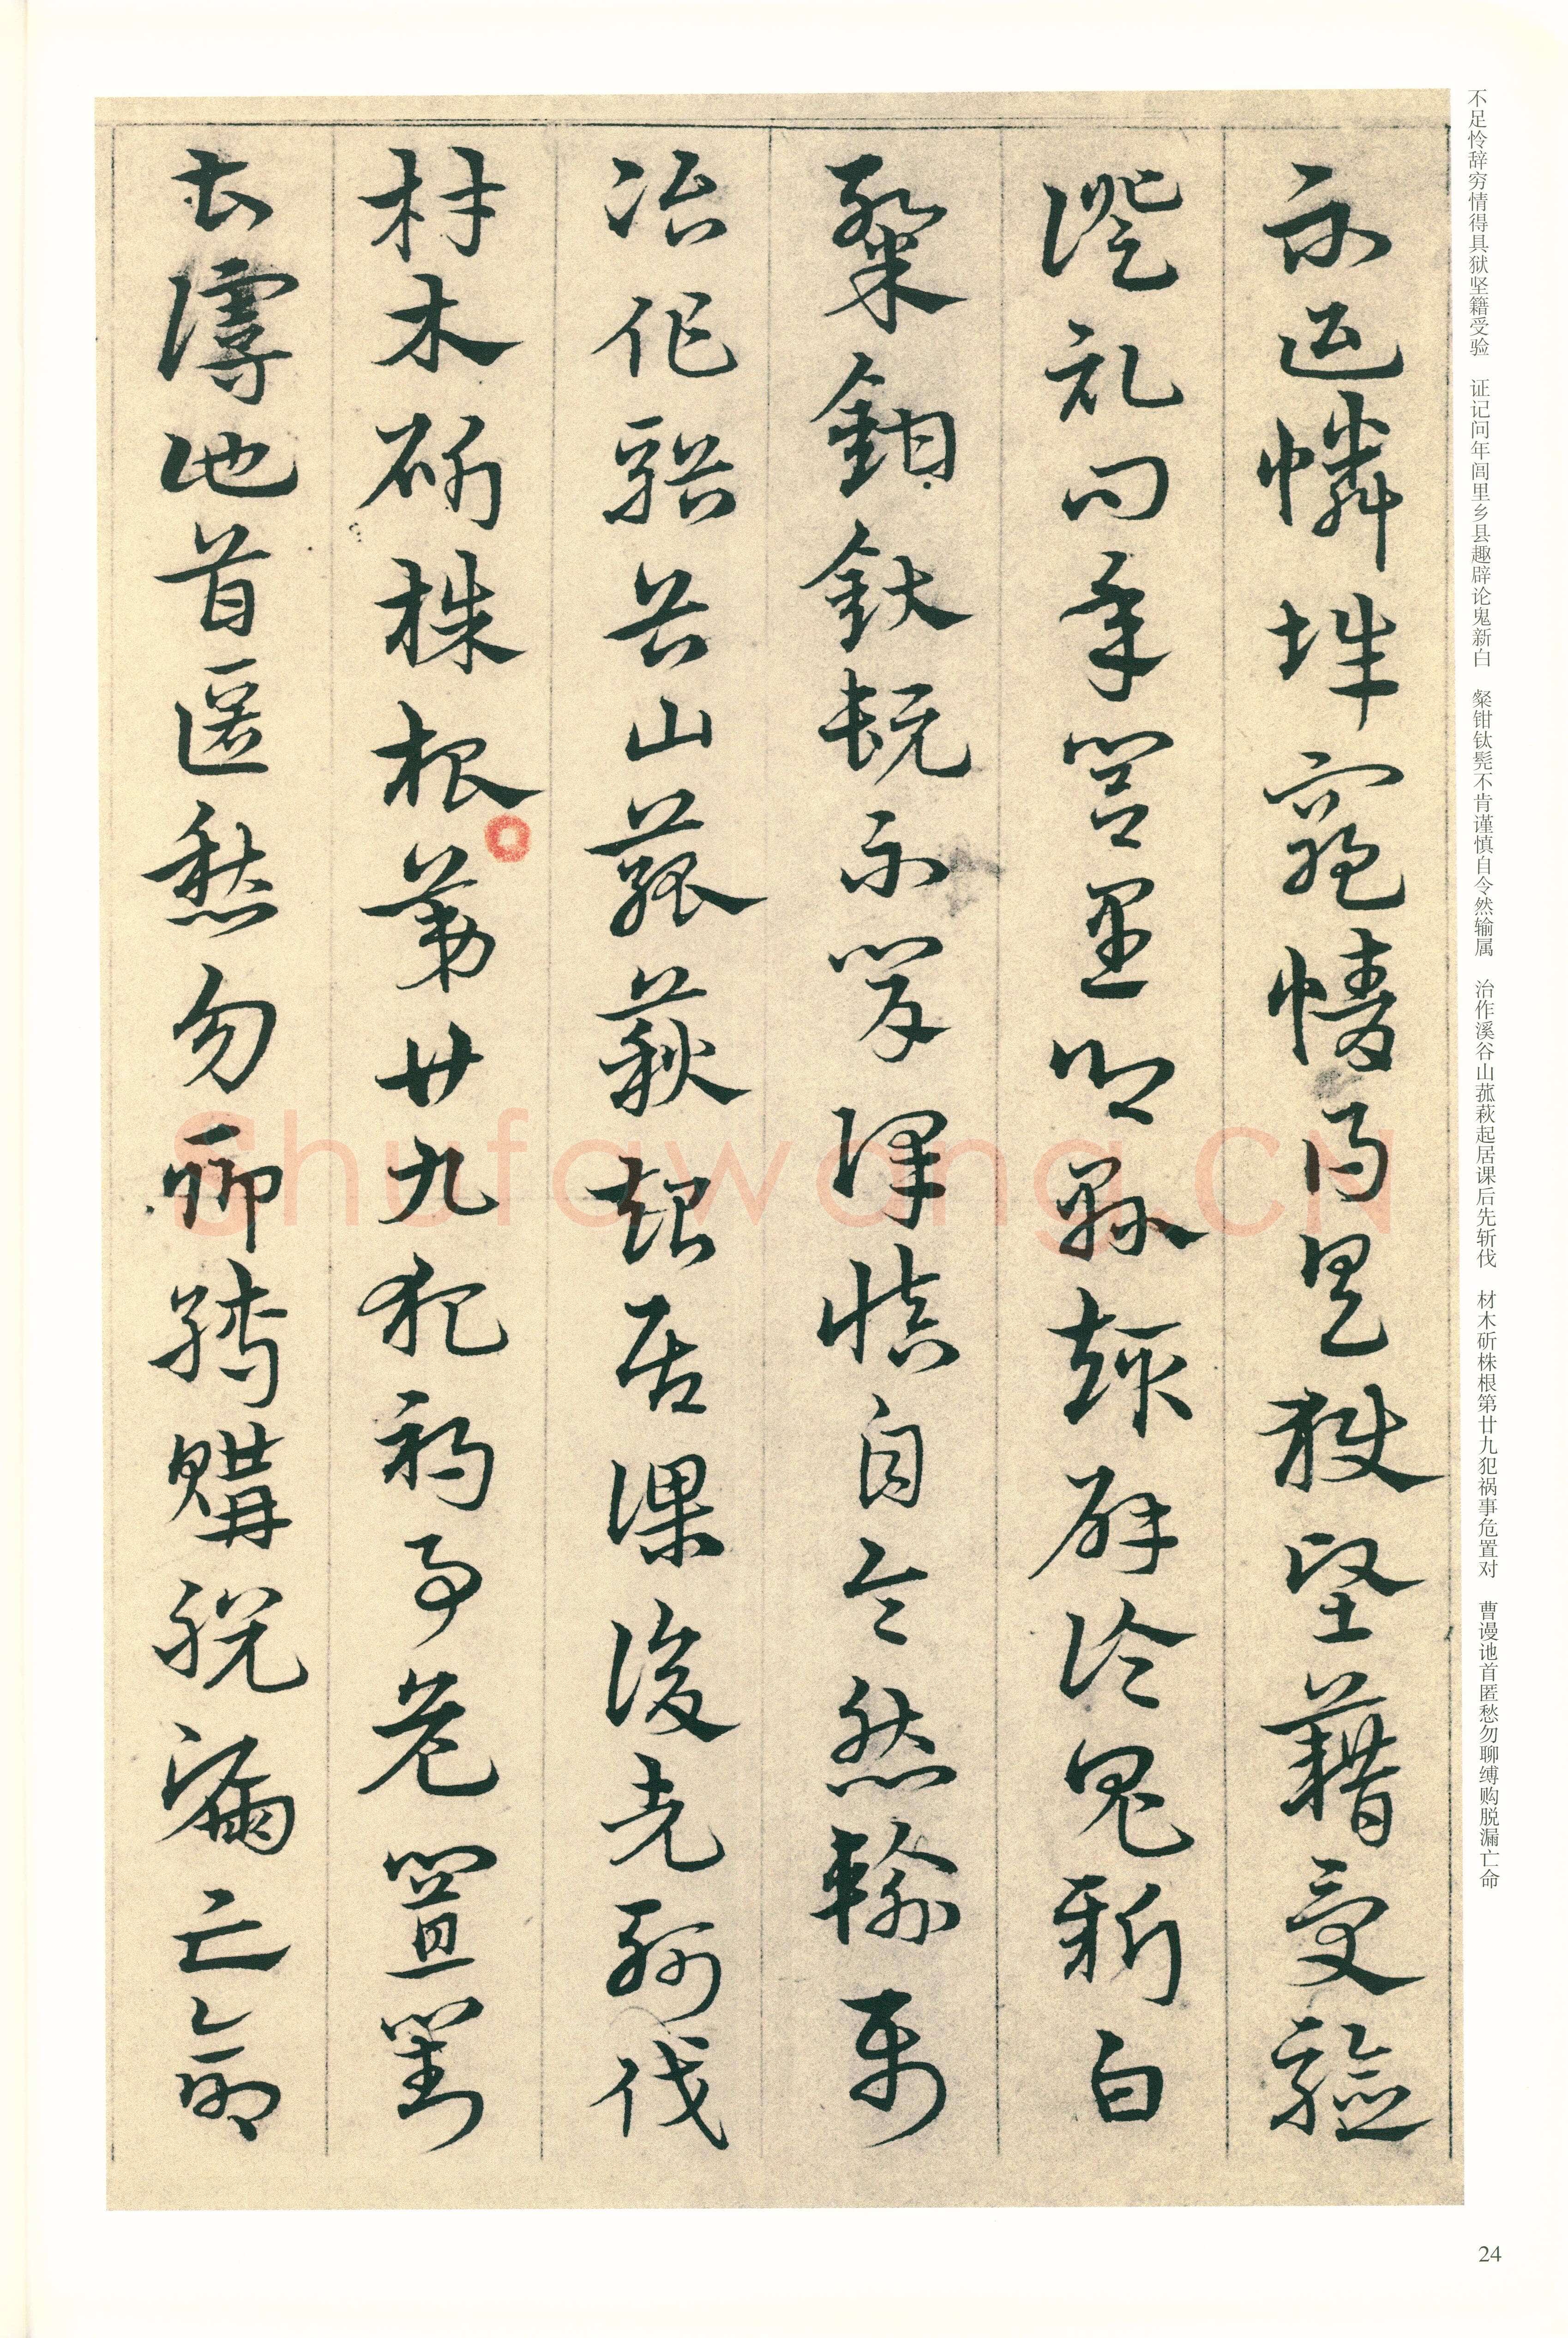 不足怜辞穷情得具狱坚籍受验 证记问年闾里乡县趣辟论鬼新白 粲钳钛髡不肯谨慎自令然输属 治作溪谷山菰萩起居课后先斩伐 材木斫株根第廿九犯祸事危置对 曹谩訑首匿愁勿聊缚购脱漏亡命
不足憐辭窮情得具獄堅藉受驗
證記問年閭里鄉縣趣辟論鬼新白
粲鉗釱髡不肯謹慎自令然輸屬
治作谿谷山菰萩起居課後先斬伐
材木斫株根第廿九犯禍事危置對
曹謾訑首匿愁勿聊縛購脫漏亡命
Shufawang.CN
24